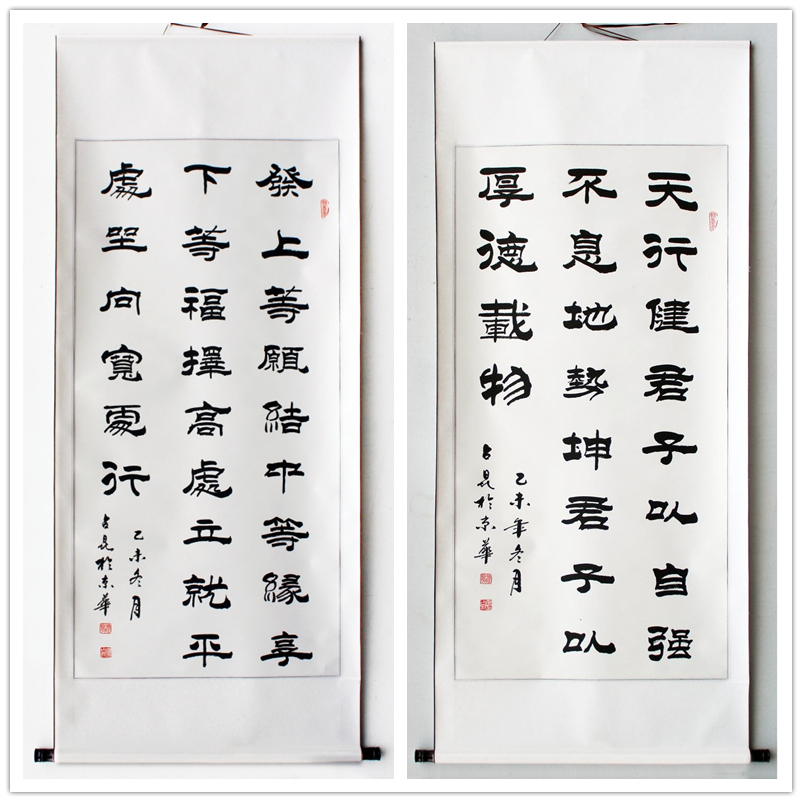 發上等願結中等緣享
下等福擇高處立就平
處坐向寬處行
乙未冬月
占昆於京華
天行健君子以自强
不息地勢坤君子以
厚德載物
乙未年冬月
占昆於京華